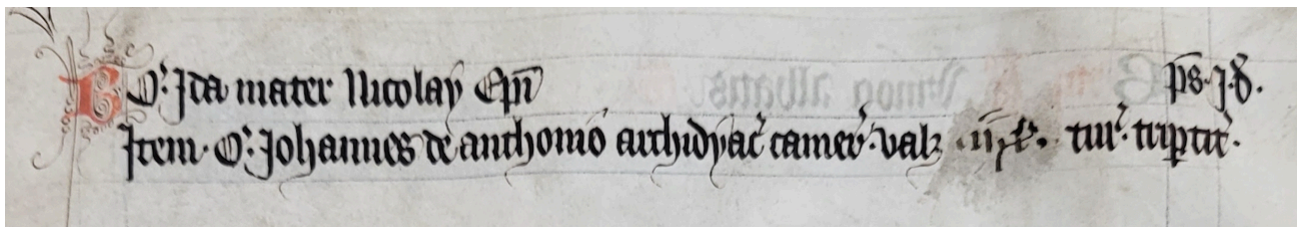 G O. Ida mater Nicolay Epi ps. j. d.
Item. O. Johannes de anthonio archidyac camer. valz turon tripertit.